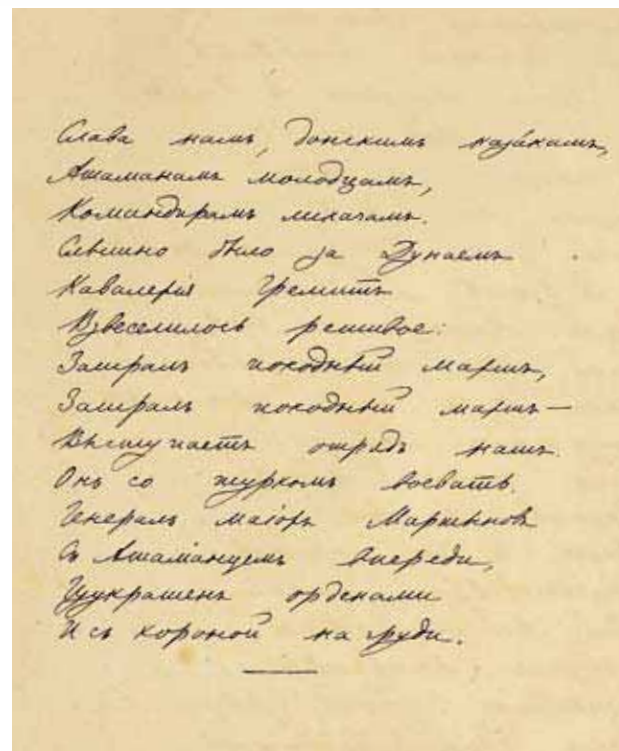 Слава намъ, донскимъ каза́камъ,
Атаманамъ молодцамъ,
Командирамъ лихачамъ.
Слышно было за Дунаемъ
Кавалерія гремитъ
Взвеселилось ретивое:
Заигралъ походный маршъ,
Заигралъ походный маршъ —
Выступаетъ отрядъ нашъ.
Онъ со туркомъ воевать.
Генералъ маіоръ Мартыновъ
Съ Атаманцемъ впереди,
Изукрашенъ орденами
И съ короной на груди.